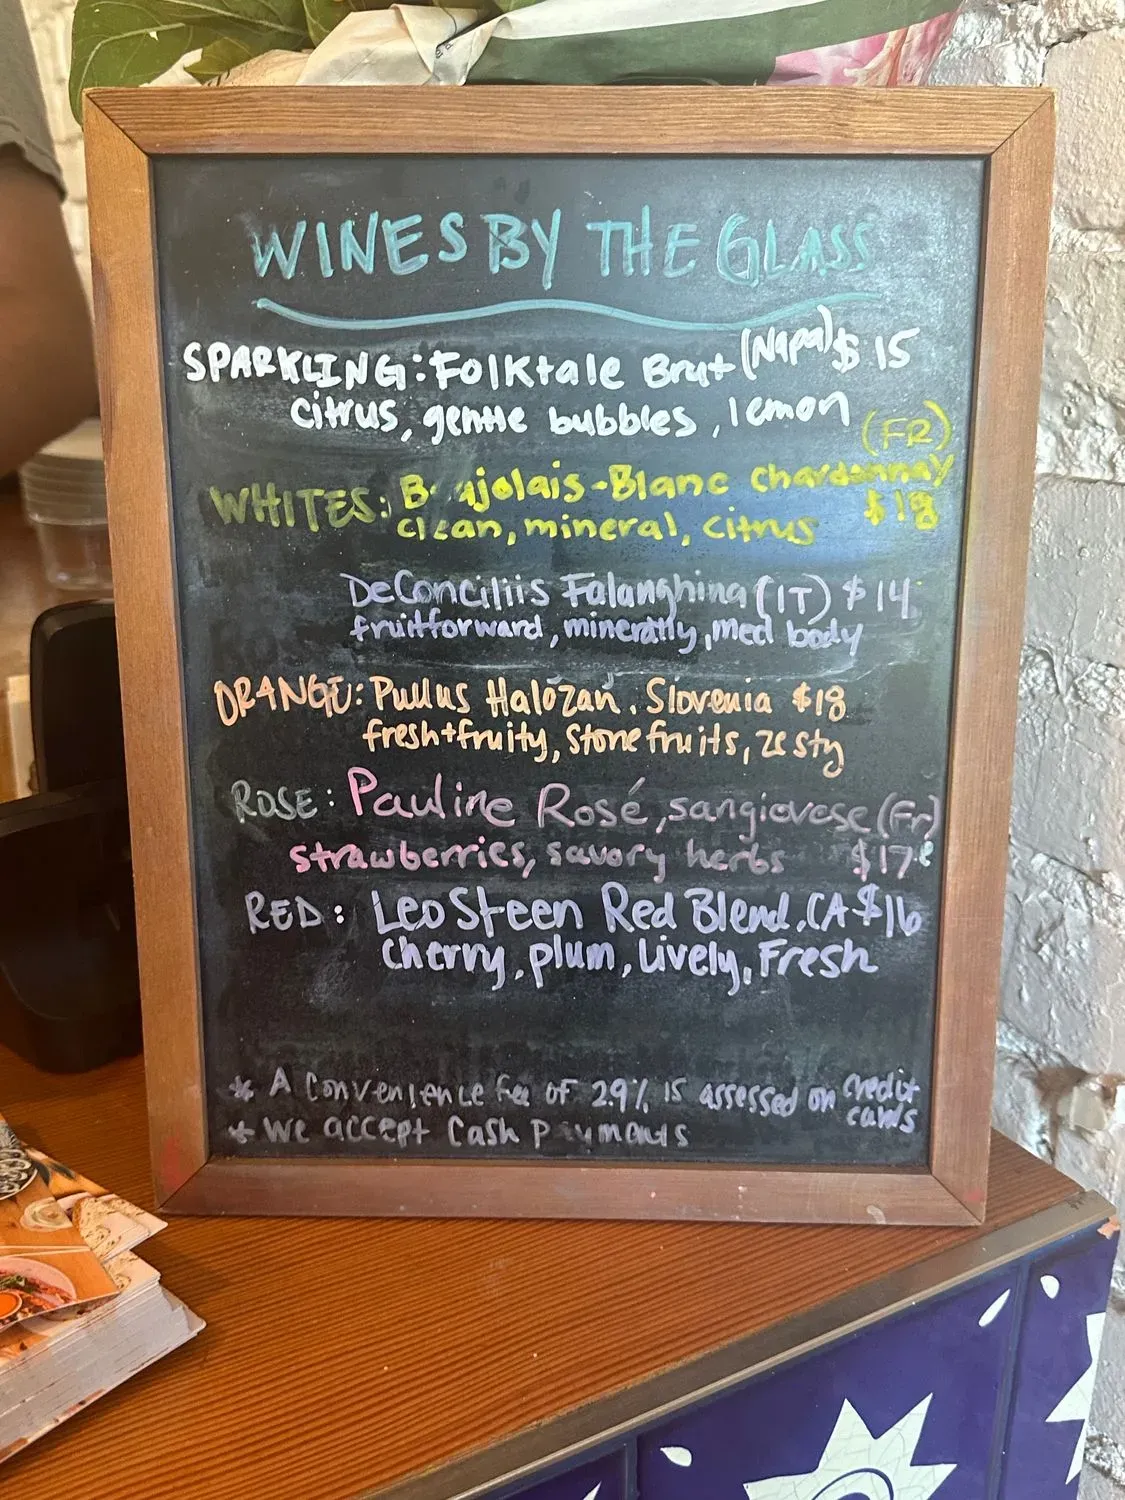 WINES BY THE GLASS
SPARKLING: Folktale Brut (Napa) $15
citrus, gentle bubbles, lemon
(FR)
WHITES: B ajolais-Blanc chardonnay
clean, mineral, citrus $18
DeConciliis Falanghina (IT) $14
fruitforward, minerally, med body
ORANGE: Pullus Halozan, Slovenia $18
fresh+fruity, stone fruits, zesty
ROSE: Pauline Rosé, sangiovese (Fr)
strawberries, savory herbs $17
RED: Leo Steen Red Blend, CA $16
cherry, plum, Lively, Fresh
* A Convenience fee of 2.9% is assessed on credit
cards
* We accept Cash Payments